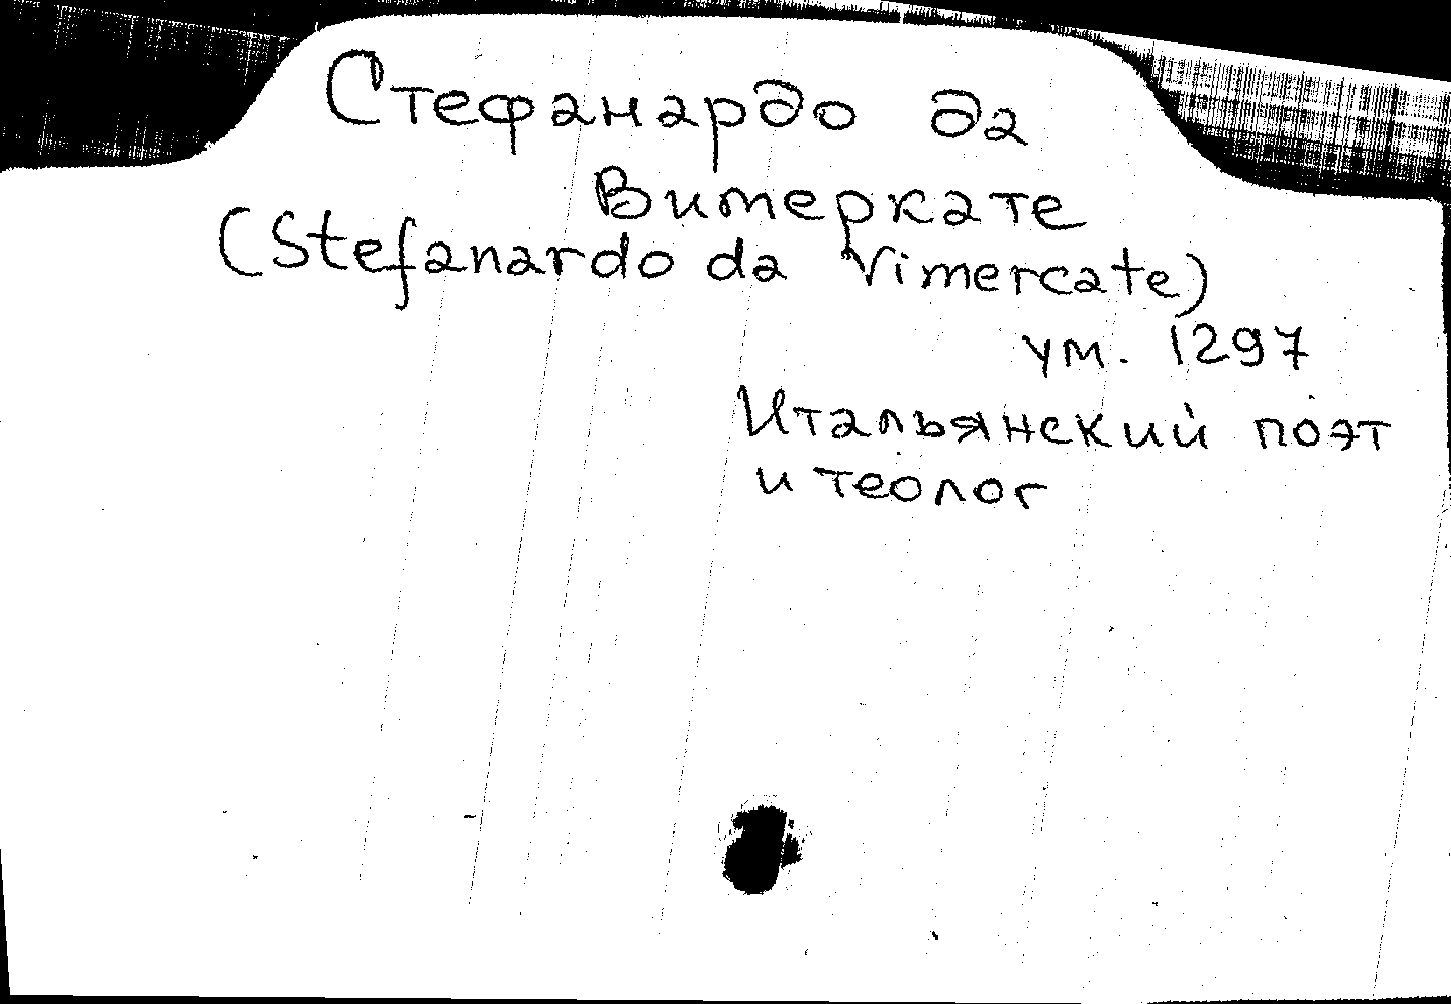 Стефанардо да
Вимеркате
(Stefanardo da Vimercate)
ум. 1297
Итальянский поэт
и теолог